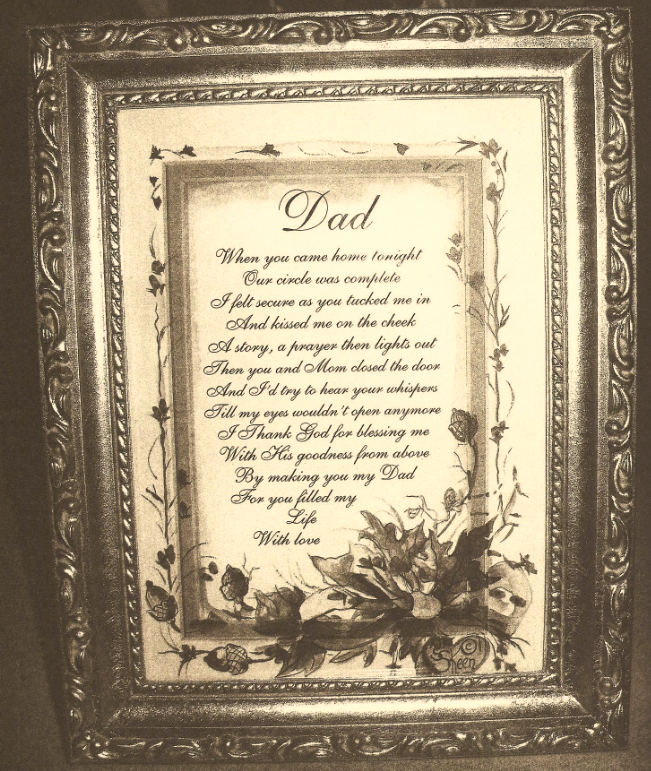 Dad
When you came home tonight
Our circle was complete
I felt secure as you tucked me in
And kissed me on the cheek
A story, a prayer then lights out
Then you and Mom closed the door
And I'd try to hear your whispers
Till my eyes wouldn't open anymore
I Thank God for blessing me
With His goodness from above
By making you my Dad
For you filled my
Life
With love
©
Sheen